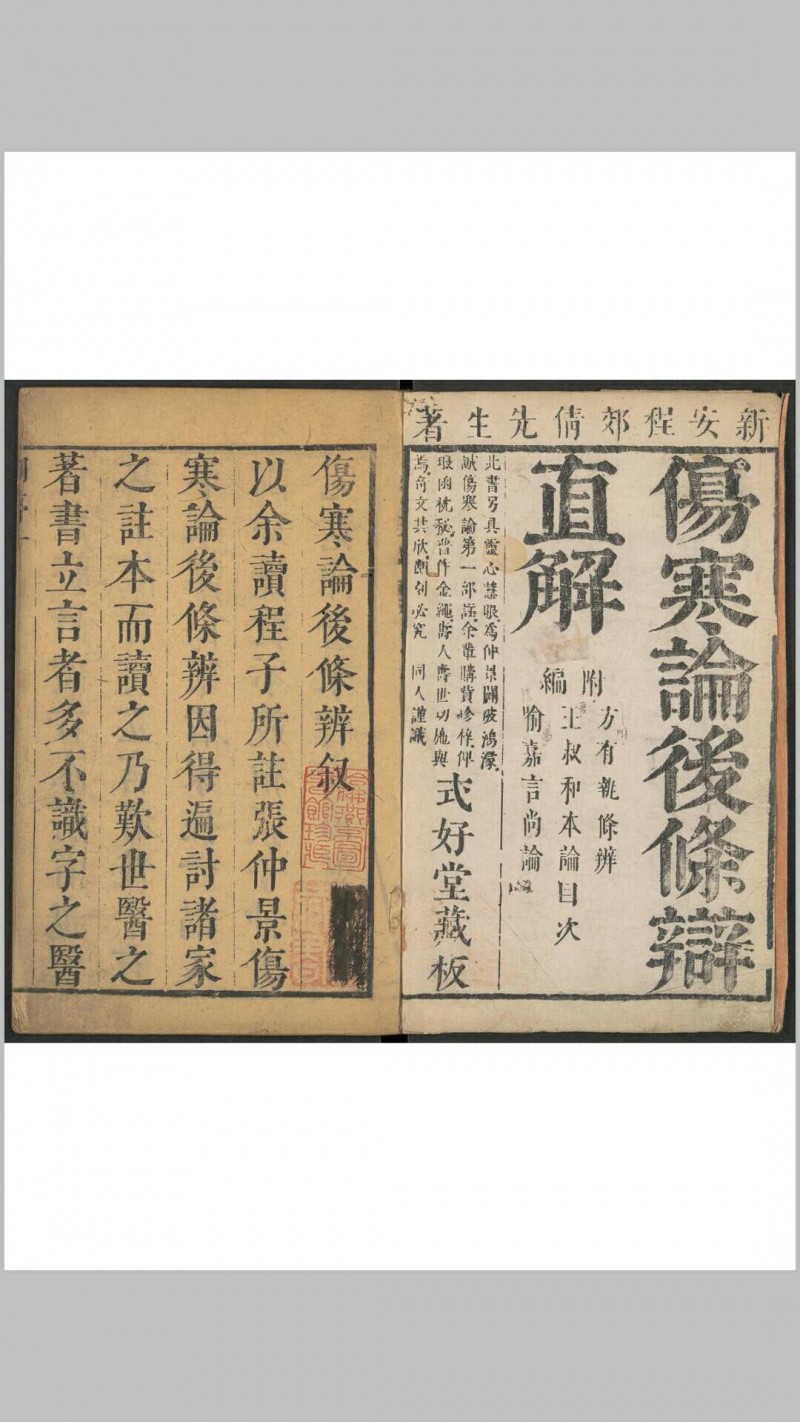 新安程郊倩先生著
傷寒論後條辯
直解
附
編
方有執條辨
王叔和本論目次
喻嘉言尚論
此書另具靈心慧眼為仲景闢破鴻濛
誠傷寒論第一部
人壽世切施與
為奇文共欣翻刻必究 同人謹識
式好堂藏板
傷寒論後條辨叙
以余讀程子所註張仲景傷
寒論後條辨因得遍討諸家
之註本而讀之乃歎世醫之
著書立言者多不識字之醫